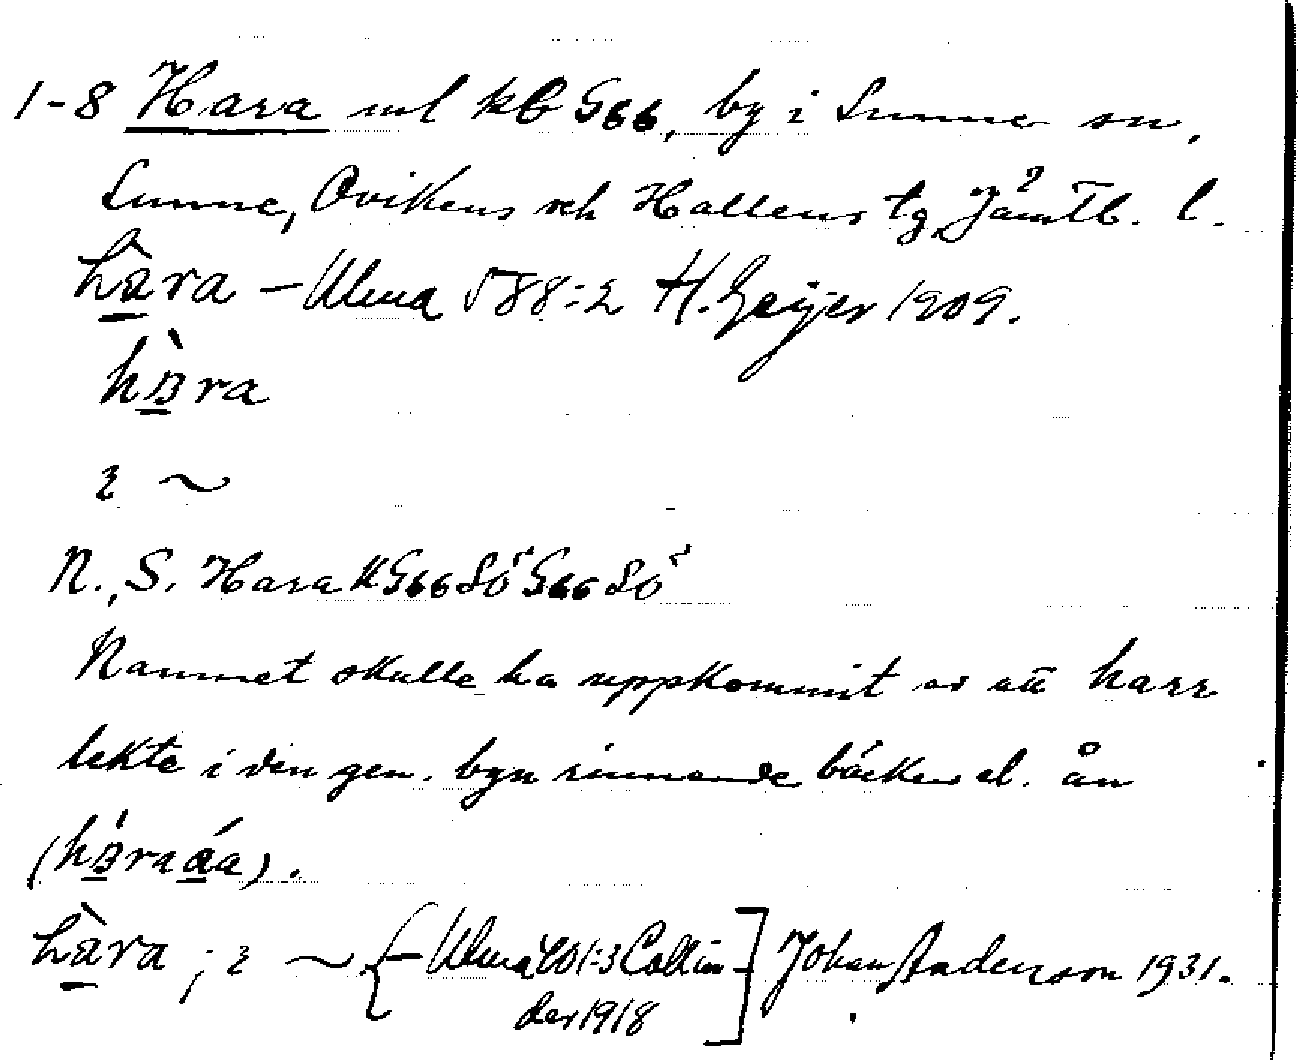 1-8 Hara ml kb G66, by i Sunne sn,
Sunne, Ovikens och Hallens tg, Jämtl. l.
hàra – Ulma 588:2 H. Geijer 1909.
hàra
i ~
N., S. Hara G66 Sö G66 Sö
Namnet skulle ha uppkommit av att harr
lekte i den gen. byn rinnande bäcken el. ån
(háraáa).
hàra ; i ~ {– Ulma 401:3 Collin-
der 1918] Johan Anderson 1931.